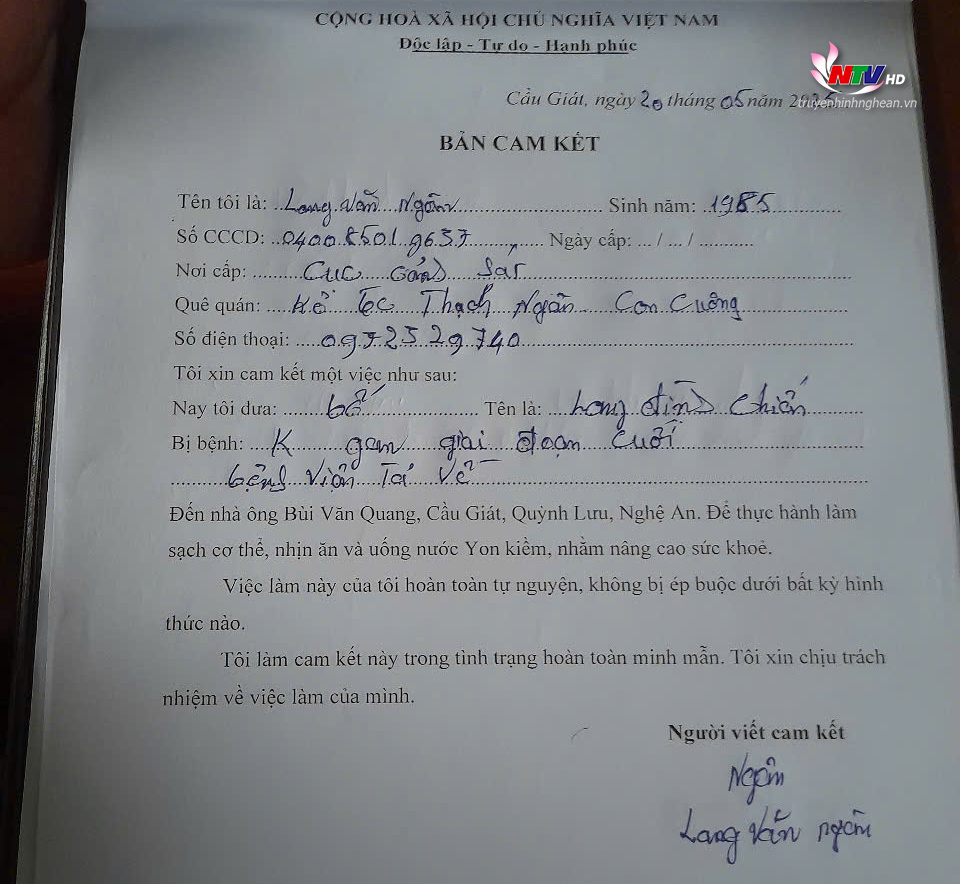 CỘNG HOÀ XÃ HỘI CHỦ NGHĨA VIỆT NAM
Độc lập - Tự do - Hạnh phúc
NTV HD
truyenhinhnghean.vn
Cầu Giát, ngày 20 tháng 05 năm 2025
BẢN CAM KẾT
Tên tôi là: Lang Văn Ngân Sinh năm: 1985
Số CCCD: 040085019637 Ngày cấp: ... / ... / ...........
Nơi cấp: Cục Cảnh Sát
Quê quán: Kẻ Thạch Ngàn Con Cuông
Số điện thoại: 0972529740
Tôi xin cam kết một việc như sau:
Nay tôi đưa: bố Tên là: Long đình Chiến
Bị bệnh: K gan giai đoạn cuối
bệnh viện Trả về
Đến nhà ông Bùi Văn Quang, Cầu Giát, Quỳnh Lưu, Nghệ An. Để thực hành làm
sạch cơ thể, nhịn ăn và uống nước Yon kiềm, nhằm nâng cao sức khoẻ.
Việc làm này của tôi hoàn toàn tự nguyện, không bị ép buộc dưới bất kỳ hình
thức nào.
Tôi làm cam kết này trong tình trạng hoàn toàn minh mẫn. Tôi xin chịu trách
nhiệm về việc làm của mình.
Người viết cam kết
Ngân
Lang Văn Ngân